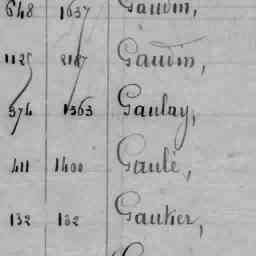 648 1637 Gaudin,
1125 2187 Gaudin,
574 1363 Gaulay,
411 1400 Gaulé,
132 132 Gautier,